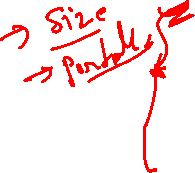 → Size
→ Portable